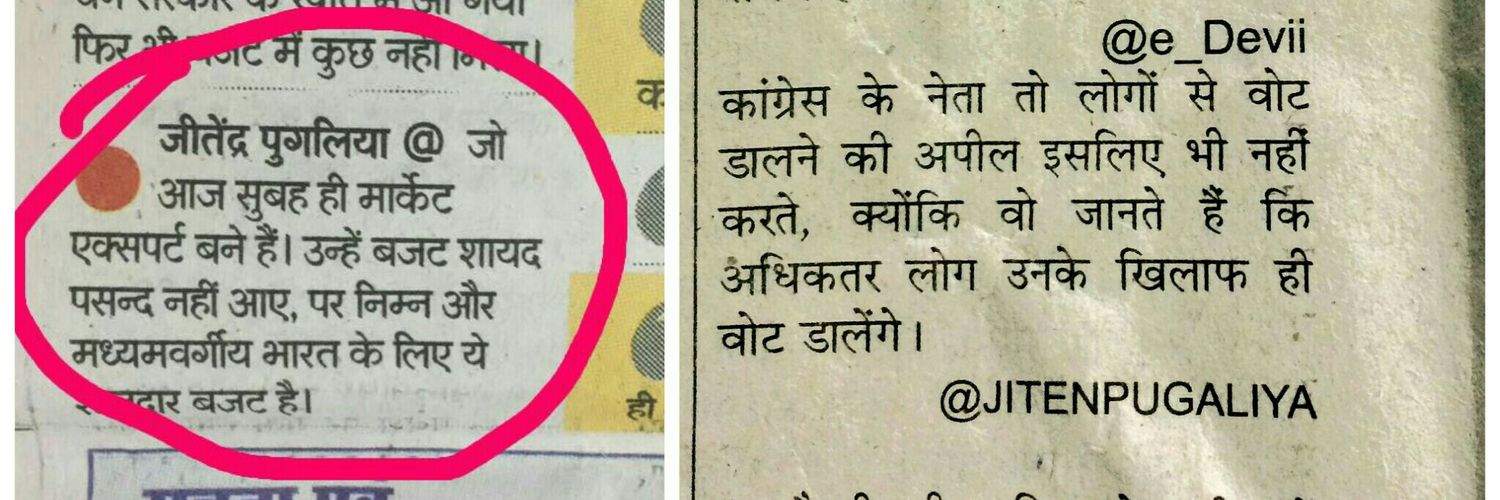 फिर भी बजट में कुछ नहीं मिला।
जीतेंद्र पुगलिया @ जो
आज सुबह ही मार्केट
एक्सपर्ट बने हैं। उन्हें बजट शायद
पसन्द नहीं आए, पर निम्न और
मध्यमवर्गीय भारत के लिए ये
बजट है।
क
ही
@e_Devii
कांग्रेस के नेता तो लोगों से वोट
डालने की अपील इसलिए भी नहीं
करते, क्योंकि वो जानते हैं कि
अधिकतर लोग उनके खिलाफ ही
वोट डालेंगे।
@JITENPUGALIYA